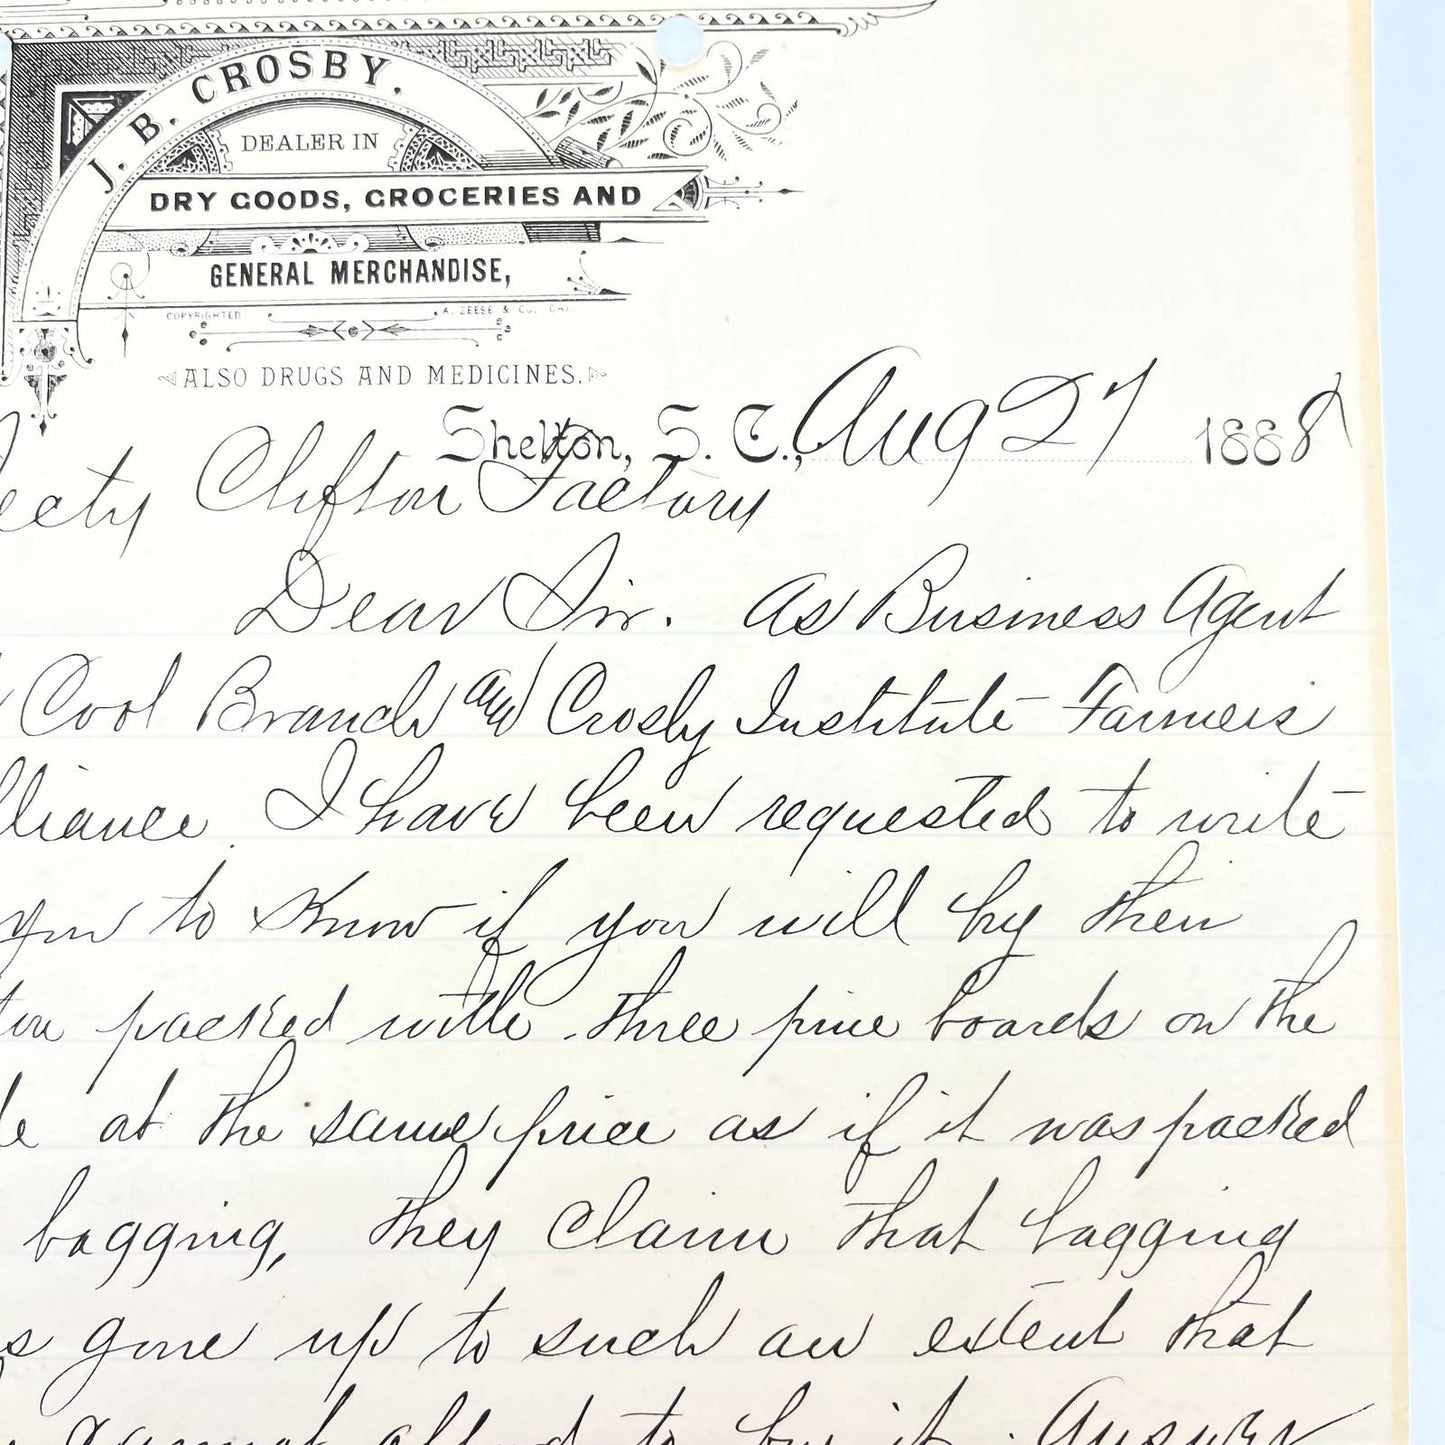 J. B. CROSBY.
DEALER IN
DRY GOODS, GROCERIES AND
GENERAL MERCHANDISE,
COPYRIGHTED A. ZEESE & CO. CHI
ALSO DRUGS AND MEDICINES.
Shelton, S. C., Aug 27 1888
Clifton Factory
Dear Sir. As Business Agent
Cool Branch and Crosby Institute Farmers
lliance. I have been requested to write
you to Know if you will by their
ton packed with three pine boards on the
le at the same price as if it was packed
bagging, they claim that bagging
s gone up to such an extent that
cannot afford to buy it. Answer